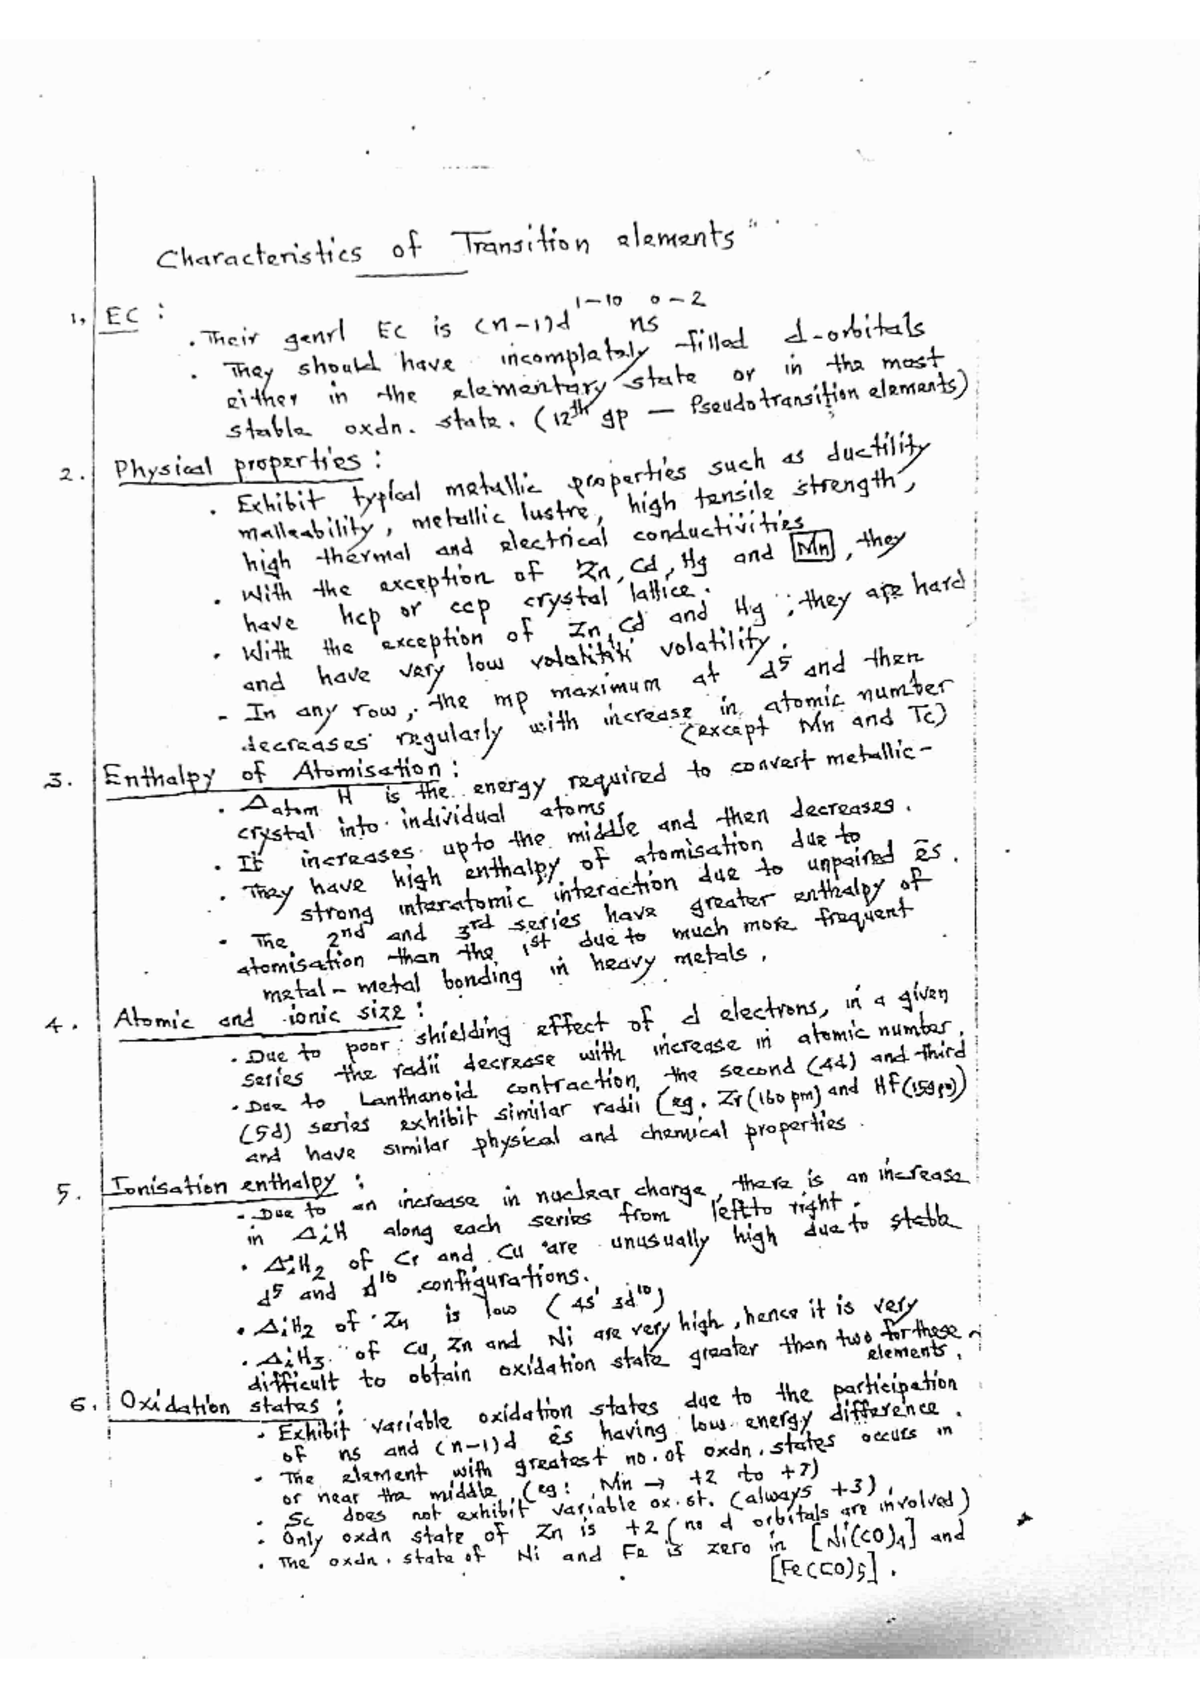 Characteristics of Transition elements
1, EC :
1-10 0-2
. Their genrl EC is (n-1)d ns
. They should have incompletely filled d-orbitals
either in the elementary state or in the most
stable oxdn. state. (12th gp — Pseudotransition elements)
2. Physical properties :
. Exhibit typical metallic properties such as ductility
malleability, metallic lustre, high tensile strength,
high thermal and electrical conductivities
. With the exception of Zn, Cd, Hg and Mn, they
have hcp or ccp crystal lattice.
. With the exception of Zn, Cd and Hg, they are hard
and have very low volatility.
- In any row, the mp maximum at d5 and then
decreases regularly with increase in atomic number
(except Mn and Tc)
3. Enthalpy of Atomisation :
. Δatom H is the energy required to convert metallic-
crystal into individual atoms
. It increases upto the middle and then decreases.
. They have high enthalpy of atomisation due to
strong interatomic interaction due to unpaired ēs.
. The 2nd and 3rd series have greater enthalpy of
atomisation than the 1st due to much more frequent
metal-metal bonding in heavy metals.
4. Atomic and ionic size :
. Due to poor shielding effect of d electrons, in a given
series the radii decrease with increase in atomic number.
. Due to Lanthanoid contraction, the second (4d) and third
(5d) series exhibit similar radii (eg. Zr(160 pm) and Hf(159 pm))
and have similar physical and chemical properties.
5. Ionisation enthalpy :
- Due to an increase in nuclear charge, there is an increase
in ΔiH along each series from left to right.
. ΔiH2 of Cr and Cu are unusually high due to stable
d5 and d10 configurations.
. ΔiH2 of Zn is low (4s1 3d10)
. ΔiH3 of Cu, Zn and Ni are very high, hence it is very
difficult to obtain oxidation state greater than two for these
elements.
6. Oxidation states :
. Exhibit variable oxidation states due to the participation
of ns and (n-1)d ēs having low energy difference.
. The element with greatest no. of oxdn. states occurs in
or near the middle (eg: Mn → +2 to +7)
. Sc does not exhibit variable ox. st. (always +3).
. Only oxdn state of Zn is +2 (no d orbitals are involved)
. The oxdn. state of Ni and Fe is zero in [Ni(CO)4] and
[Fe(CO)5].